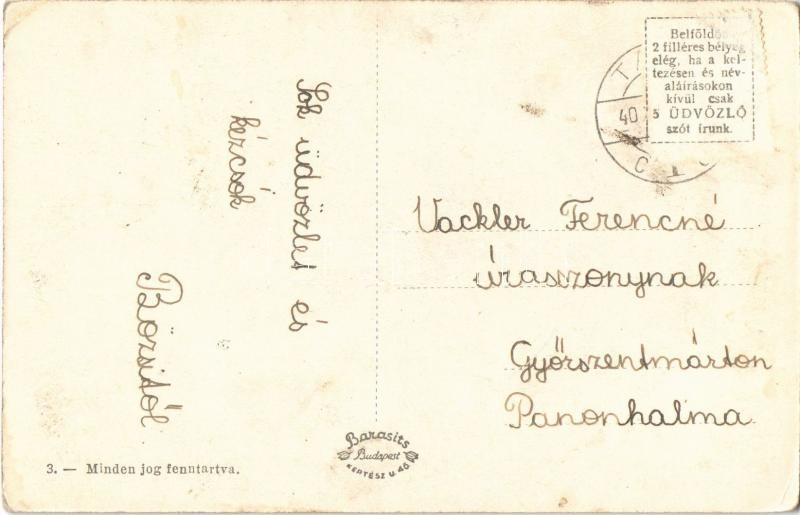 Sok üdvözlet és
kézcsók
Bözsitől
Belföldön
2 filléres bélyeg
elég, ha a kel-
tezésen és név-
aláírásokon
kívül csak
5 ÜDVÖZLŐ
szót írunk.
40
Vackler Ferencné
úraszonynak
Győrszentmárton
Panonhalma
Barasits
Budapest
KERTÉSZ U. 46
3. — Minden jog fenntartva.